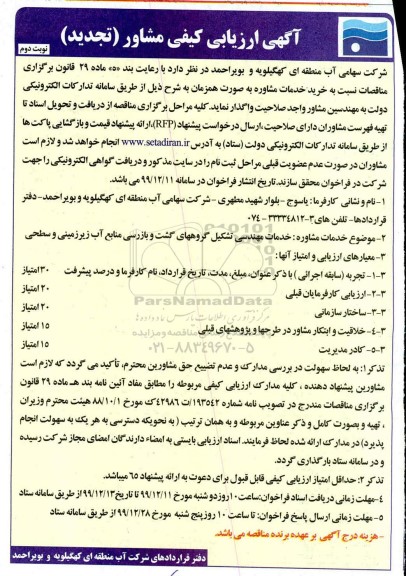 آگهی ارزیابی کیفی مشاور (تجدید)
نوبت دوم
شرکت سهامی آب منطقه ای کهگیلویه و بویراحمد در نظر دارد با رعایت بند «ه» ماده ۲۹ قانون برگزاری
مناقصات نسبت به خرید خدمات مشاوره به صورت همزمان به شرح ذیل از طریق سامانه تدارکات الکترونیکی
دولت به مهندسین مشاور واجد صلاحیت واگذار نماید. کلیه مراحل برگزاری مناقصه از دریافت و تحویل اسناد تا
تهیه فهرست مشاوران دارای صلاحیت، ارسال درخواست پیشنهاد (RFP)، ارائه پیشنهاد قیمت و بازگشایی پاکت ها
از طریق سامانه تدارکات الکترونیکی دولت (ستاد) به آدرس www.setadiran.ir انجام خواهد شد و لازم است
مشاوران در صورت عدم عضویت قبلی مراحل ثبت نام را در سایت مذکور و دریافت گواهی الکترونیکی را جهت
شرکت در فراخوان محقق سازند. تاریخ انتشار فراخوان در سامانه ۹۹/۱۲/۱۱ می باشد.
۱- نام و نشانی کارفرما: یاسوج - بلوار شهید مطهری - شرکت سهامی آب منطقه ای کهگیلویه و بویراحمد - دفتر
قراردادها - تلفن های ۳-۳۳۳۳۴۸۱۲ - ۰۷۴
۲- موضوع خدمات مشاوره: خدمات مهندسی تشکیل گروههای گشت و بازرسی منابع آب زیرزمینی و سطحی
۳- معیارهای ارزیابی و امتیاز آنها:
۳-۱- تجربه (سابقه اجرائی) با ذکر عنوان، مبلغ، مدت، تاریخ قرارداد، نام کارفرما و درصد پیشرفت ۳۰ امتیاز
۳-۲- ارزیابی کارفرمایان قبلی ۲۰ امتیاز
۳-۳- ساختار سازمانی ۲۰ امتیاز
۳-۴- خلاقیت و ابتکار مشاور در طرحها و پژوهشهای قبلی ۱۵ امتیاز
۳-۵- کادر مدیریت ۱۵ امتیاز
ParsNamadData
۰۲۱-۸۸۳۴۹۶۷۰-۵
تذکر ۱: به لحاظ سهولت در بررسی مدارک و عدم تضییع حق مشاورین محترم، تأکید می گردد که لازم است
مشاورین پیشنهاد دهنده، کلیه مدارک ارزیابی کیفی مربوطه را مطابق مفاد آئین نامه بند هـ ماده ۲۹ قانون
برگزاری مناقصات مندرج در تصویب نامه شماره ۱۹۳۵۴۲/ت ۴۲۹۸۶ک مورخ ۸۸/۱۰/۱ هیئت محترم وزیران
، تهیه و بصورت کامل و ذکر عناوین مربوطه و به همان ترتیب (به نحویکه دسترسی به هر یک به سهولت انجام
پذیرد) در مدارک ارائه شده لحاظ فرمایند. اسناد ارزیابی بایستی به امضاء دارندگان امضای مجاز شرکت رسیده
و در سامانه ستاد بارگذاری گردد.
تذکر ۲: حداقل امتیاز ارزیابی کیفی قابل قبول برای دعوت به ارائه پیشنهاد ۶۵ میباشد.
۴- مهلت زمانی دریافت اسناد فراخوان: ساعت ۱۰ روز دو شنبه مورخ ۹۹/۱۲/۱۱ تا تاریخ ۹۹/۱۲/۱۳ از طریق سامانه ستاد
۵- مهلت زمانی ارسال پاسخ فراخوان: تا ساعت ۱۰ روز پنج شنبه مورخ ۹۹/۱۲/۲۸ از طریق سامانه ستاد
- هزینه درج آگهی بر عهده برنده مناقصه می باشد.
دفتر قراردادهای شرکت آب منطقه ای کهگیلویه و بویراحمد